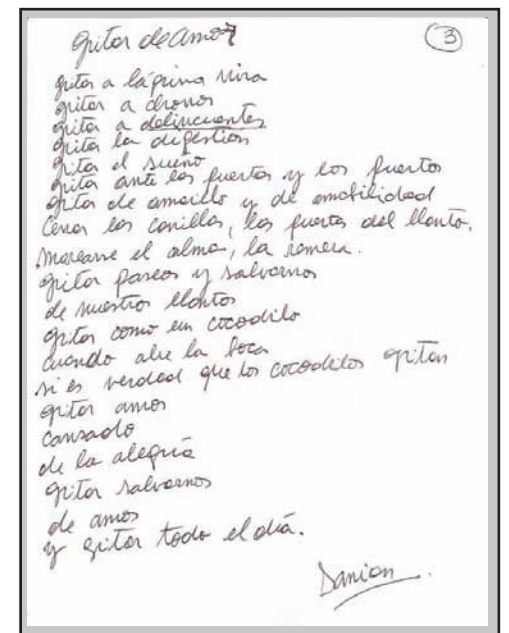 gritar de amor
3
gritar a lágrima viva
gritar a chorros
gritar a delincuentes
gritar la digestión
gritar el sueño
gritar ante las puertas y los puertos
gritar de amarillo y de amabilidad
Cerrar las canillas, las puertas del llanto.
Mojarse el alma, la remera.
gritar paseos y salvarnos
de nuestros llantos
gritar como un cocodrilo
cuando abre la boca
si es verdad que los cocodrilos gritan
gritar amor
cansado
de la alegría
gritar salvarnos
de amor
y gritar todo el día.
Damian.